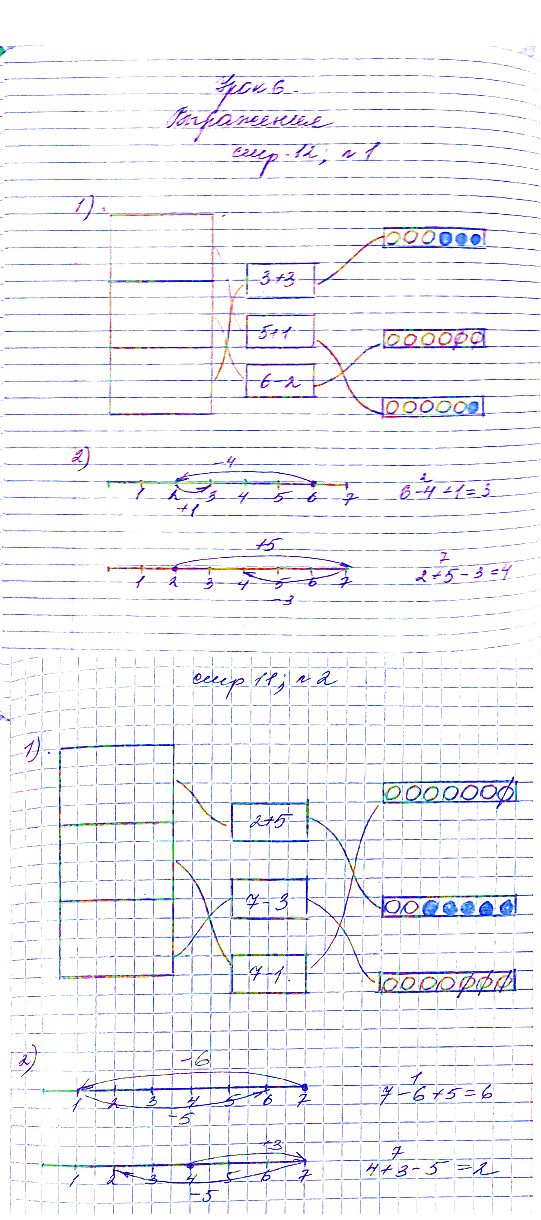 Урок 6.
Выражения
стр 12; №1
1)
3+3
5+1
6-2
2)
-4
1 2 3 4 5 6 7
+1
2
6-4+1=3
+5
1 2 3 4 5 6 7
-3
7
2+5-3=4
стр 11; №2
1)
2+5
7-3
7-1
2)
-6
1 2 3 4 5 6 7
-5
1
7-6+5=6
+3
1 2 3 4 5 6 7
-5
7
4+3-5=2